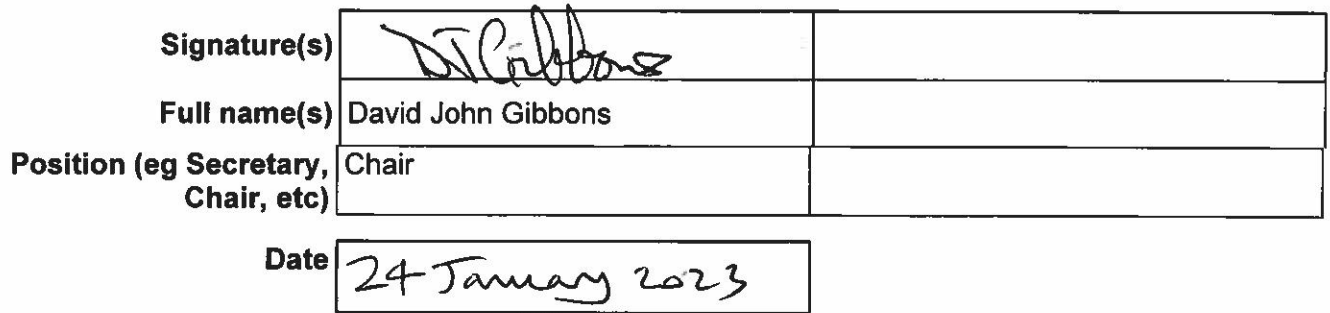 Signature(s) DJGibbons
Full name(s) David John Gibbons
Position (eg Secretary, Chair
Chair, etc)
Date 24 January 2023